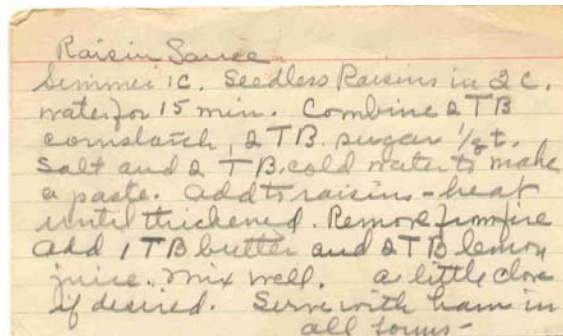 Raisin Sauce
Simmer 1 C. Seedless Raisins in 2 C.
water for 15 min. Combine 2 TB
cornstarch, 2 TB. sugar 1/8 t.
salt and 2 TB. cold water to make
a paste. Add to raisins - heat
until thickened. Remove from fire
add 1 TB butter and 2 TB lemon
juice. Mix well. a little clove
if desired. Serve with ham in
all forms -